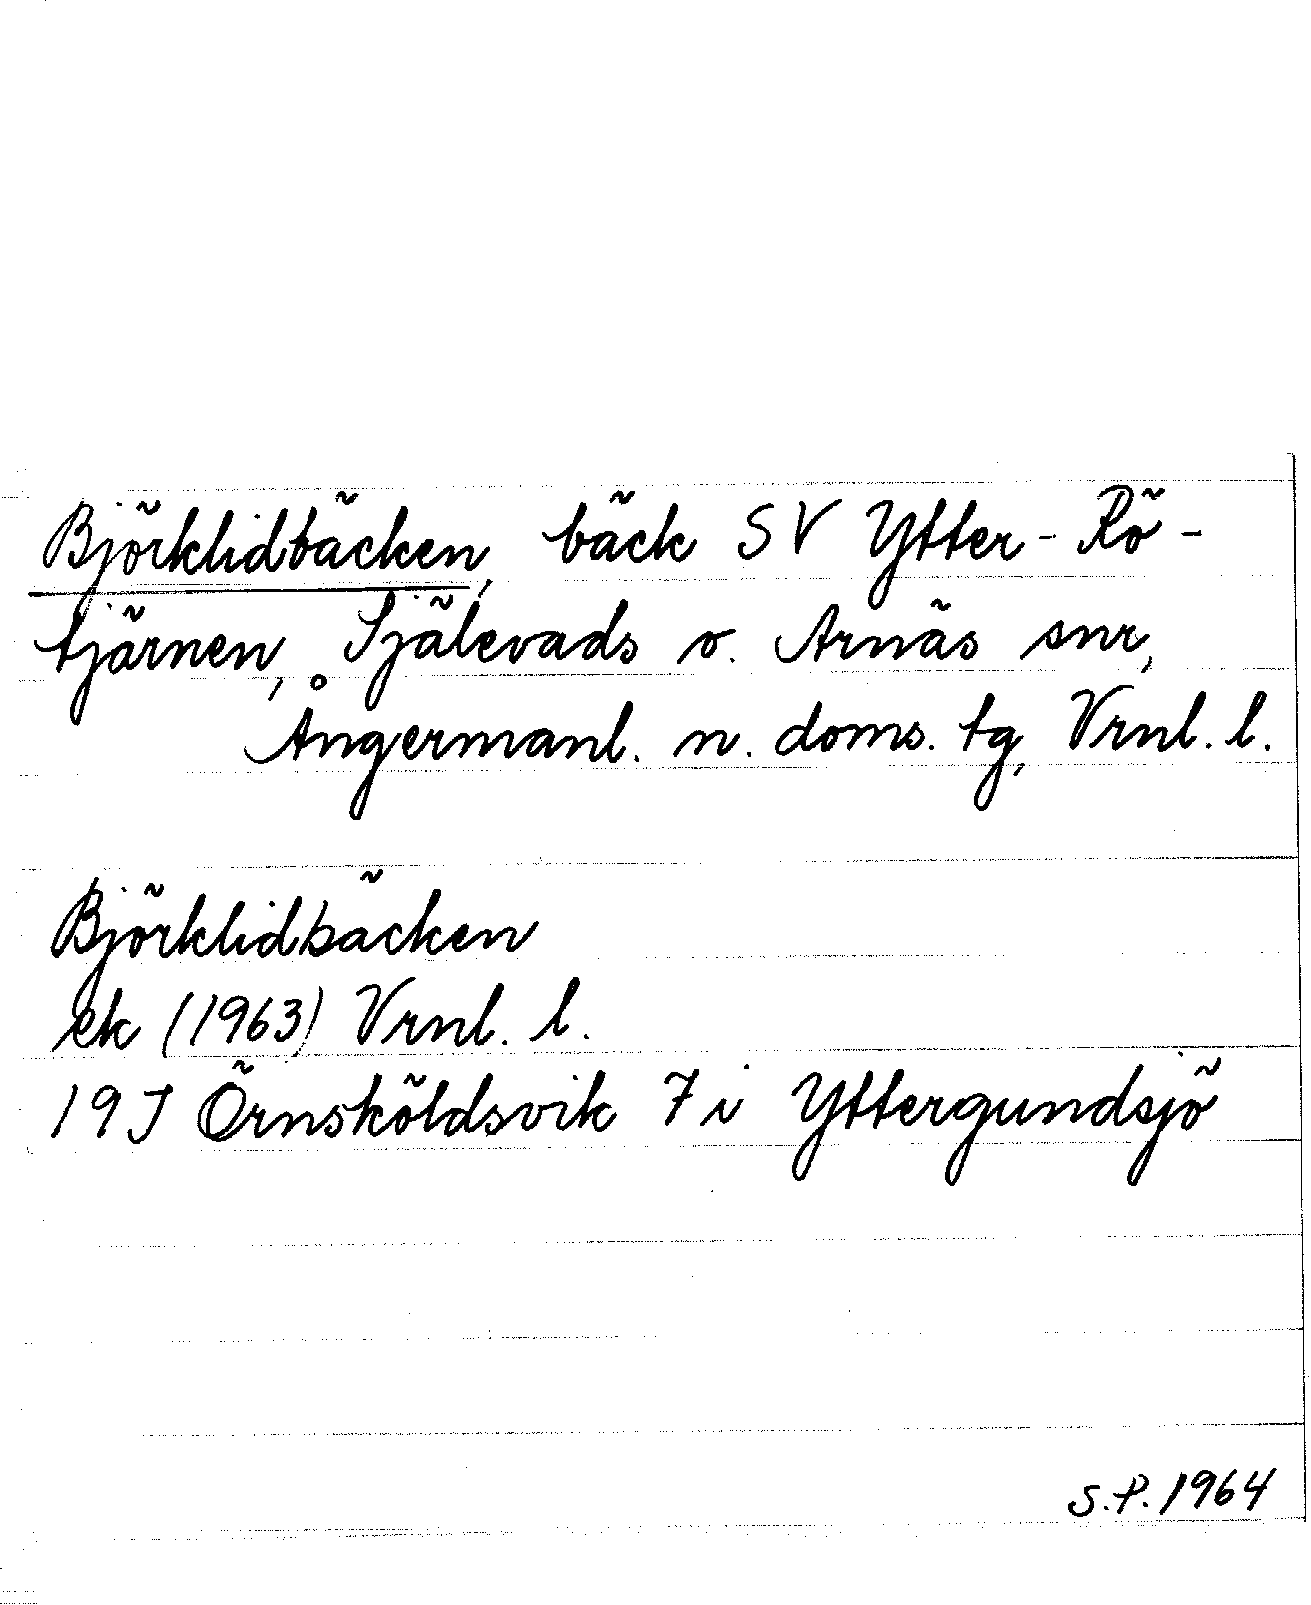 Björklidbäcken, bäck SV Ytter-Rö-
tjärnen, Själevads o. Arnäs snr,
Ångermanl. n. doms. tg, Vrnl. l.
Björklidbäcken
ek (1963) Vrnl. l.
19J Örnsköldsvik 7i Yttergundsjö
S.P. 1964